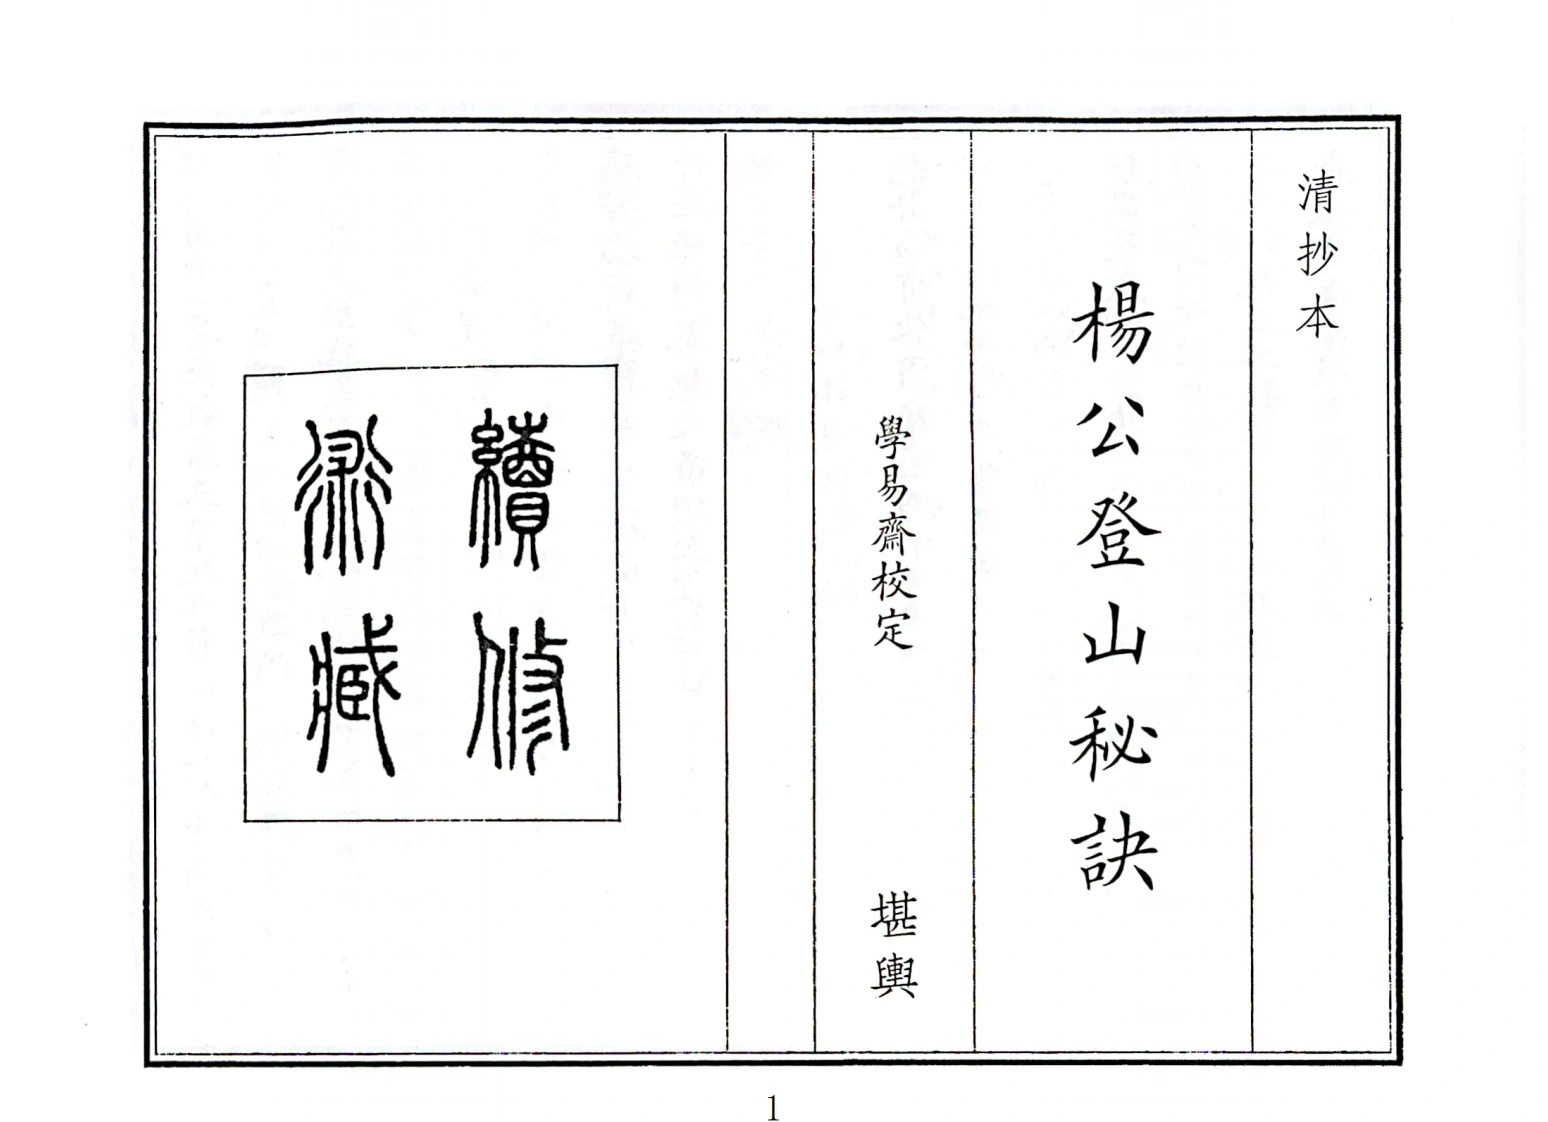 清抄本
楊公登山秘訣
學易齋校定 堪輿
續修
術藏
1